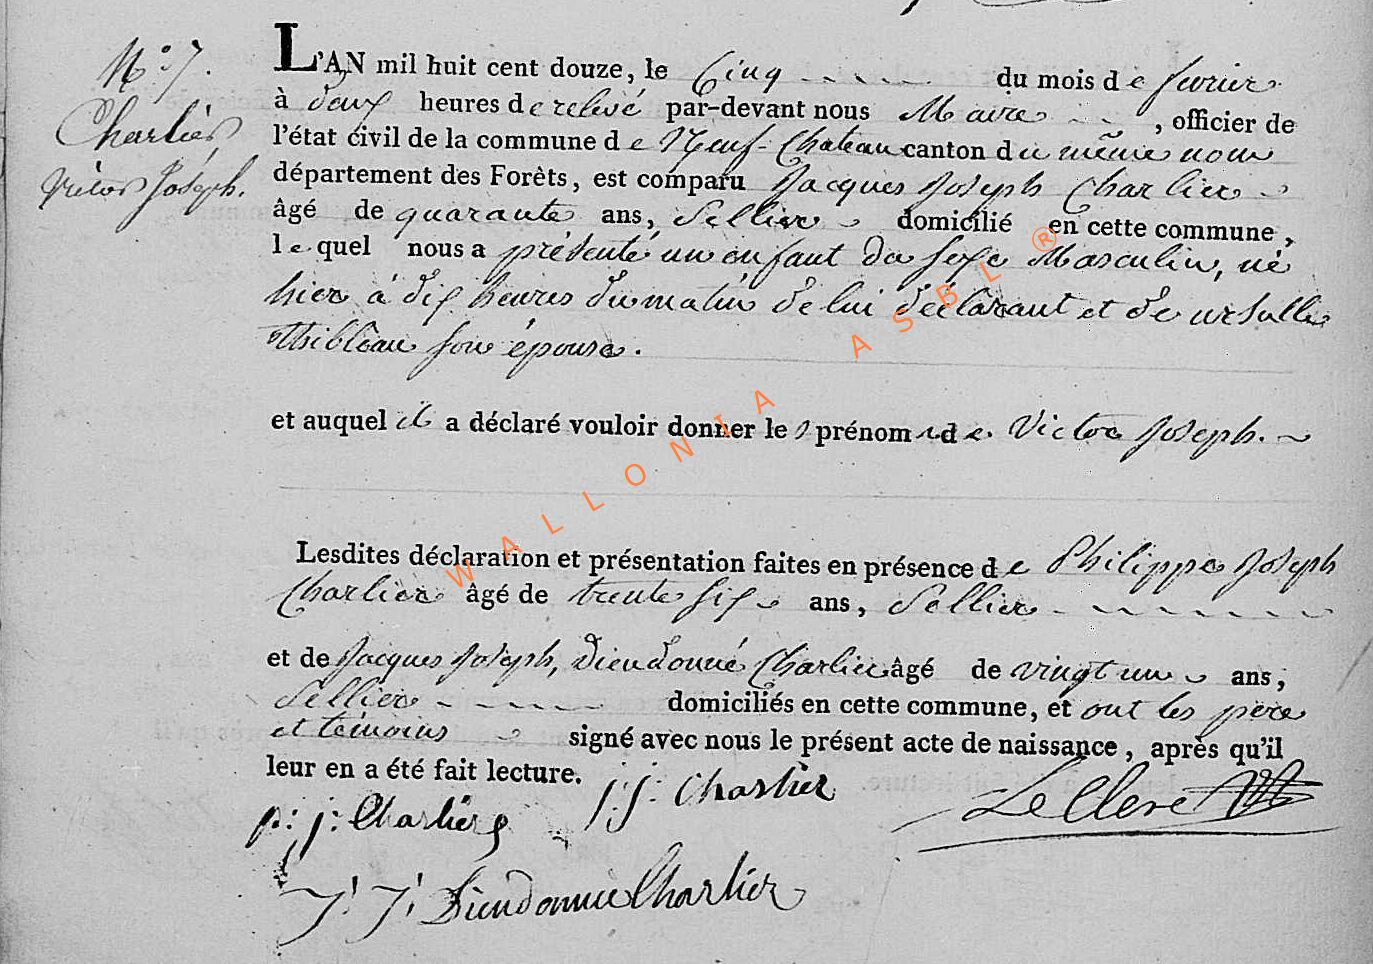 N.° 7.
Charlier,
Victor Joseph.
L'AN mil huit cent douze, le Cinq du mois de fevrier
à deux heures de relevé par-devant nous Maire, officier de
l'état civil de la commune de Neuf-Chateau canton du même nom
département des Forêts, est comparu Jacques Joseph Charlier
âgé de quarante ans, Sellier domicilié en cette commune,
lequel nous a présenté un enfant du sexe Masculin, né
hier à dix heures du matin de lui déclarant et de ursulle
Thibleau son épouse.
et auquel il a déclaré vouloir donner les prénoms de Victor Joseph.
Lesdites déclaration et présentation faites en présence de Philippe Joseph
Charlier âgé de trente six ans, Sellier
et de Jacques Joseph, Dieudonné Charlier âgé de vingt un ans,
Sellier domiciliés en cette commune, et ont les père
et témoins signé avec nous le présent acte de naissance, après qu'il
leur en a été fait lecture.
p: j: Charlier
j: j: Charlier
Le Clerc
J: J: Dieudonnée Charlier
WALLONIA ASBL ®